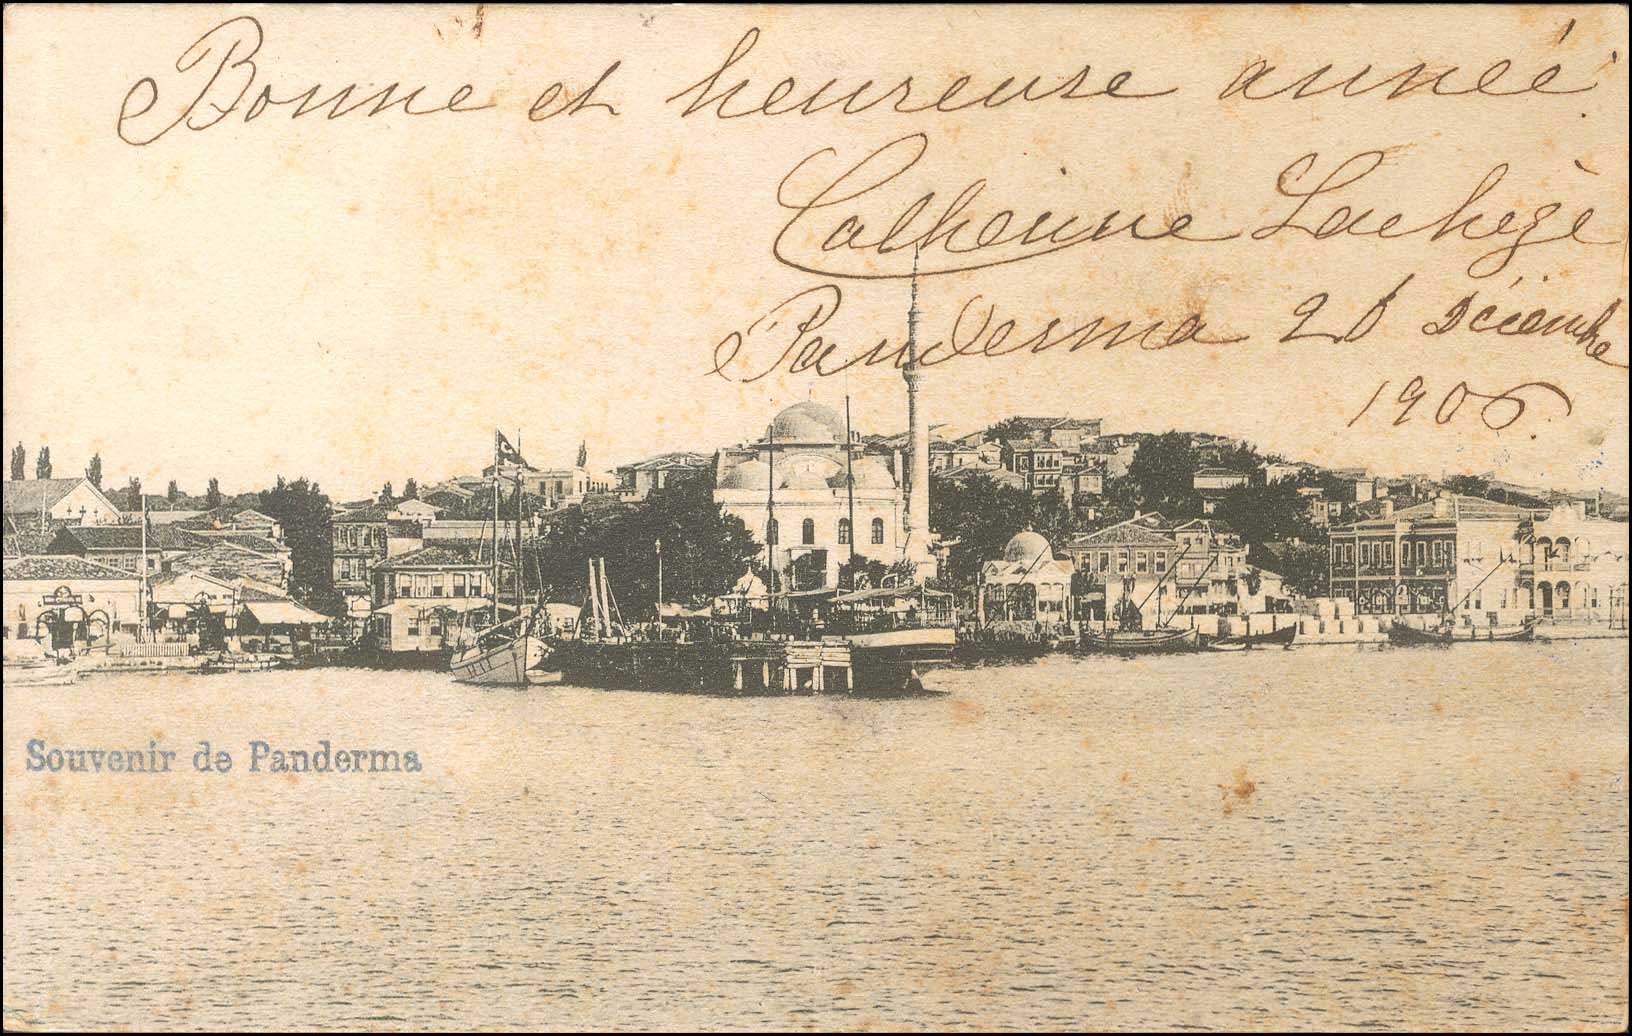 Bonne et heureuse année.
Catherine Lachège
Panderma 26 Décembre
1906.
Souvenir de Panderma